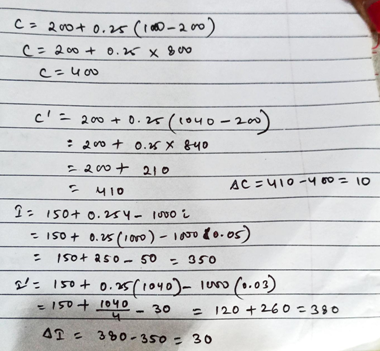 C = 200 + 0.25 (100 - 200)
C = 200 + 0.25 × 800
C = 400
C' = 200 + 0.25 (1040 - 200)
= 200 + 0.25 × 840
= 200 + 210
= 410 ΔC = 410 - 400 = 10
I = 150 + 0.25 Y - 1000 i
= 150 + 0.25 (1000) - 1000 (0.05)
= 150 + 250 - 50 = 350
I' = 150 + 0.25 (1040) - 1000 (0.03)
= 150 + 1040/4 - 30 = 120 + 260 = 380
ΔI = 380 - 350 = 30